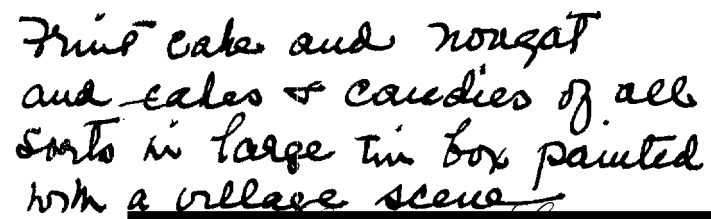 Fruit cake and nougat
and cakes & candies of all
sorts in large tin box painted
with a village scene